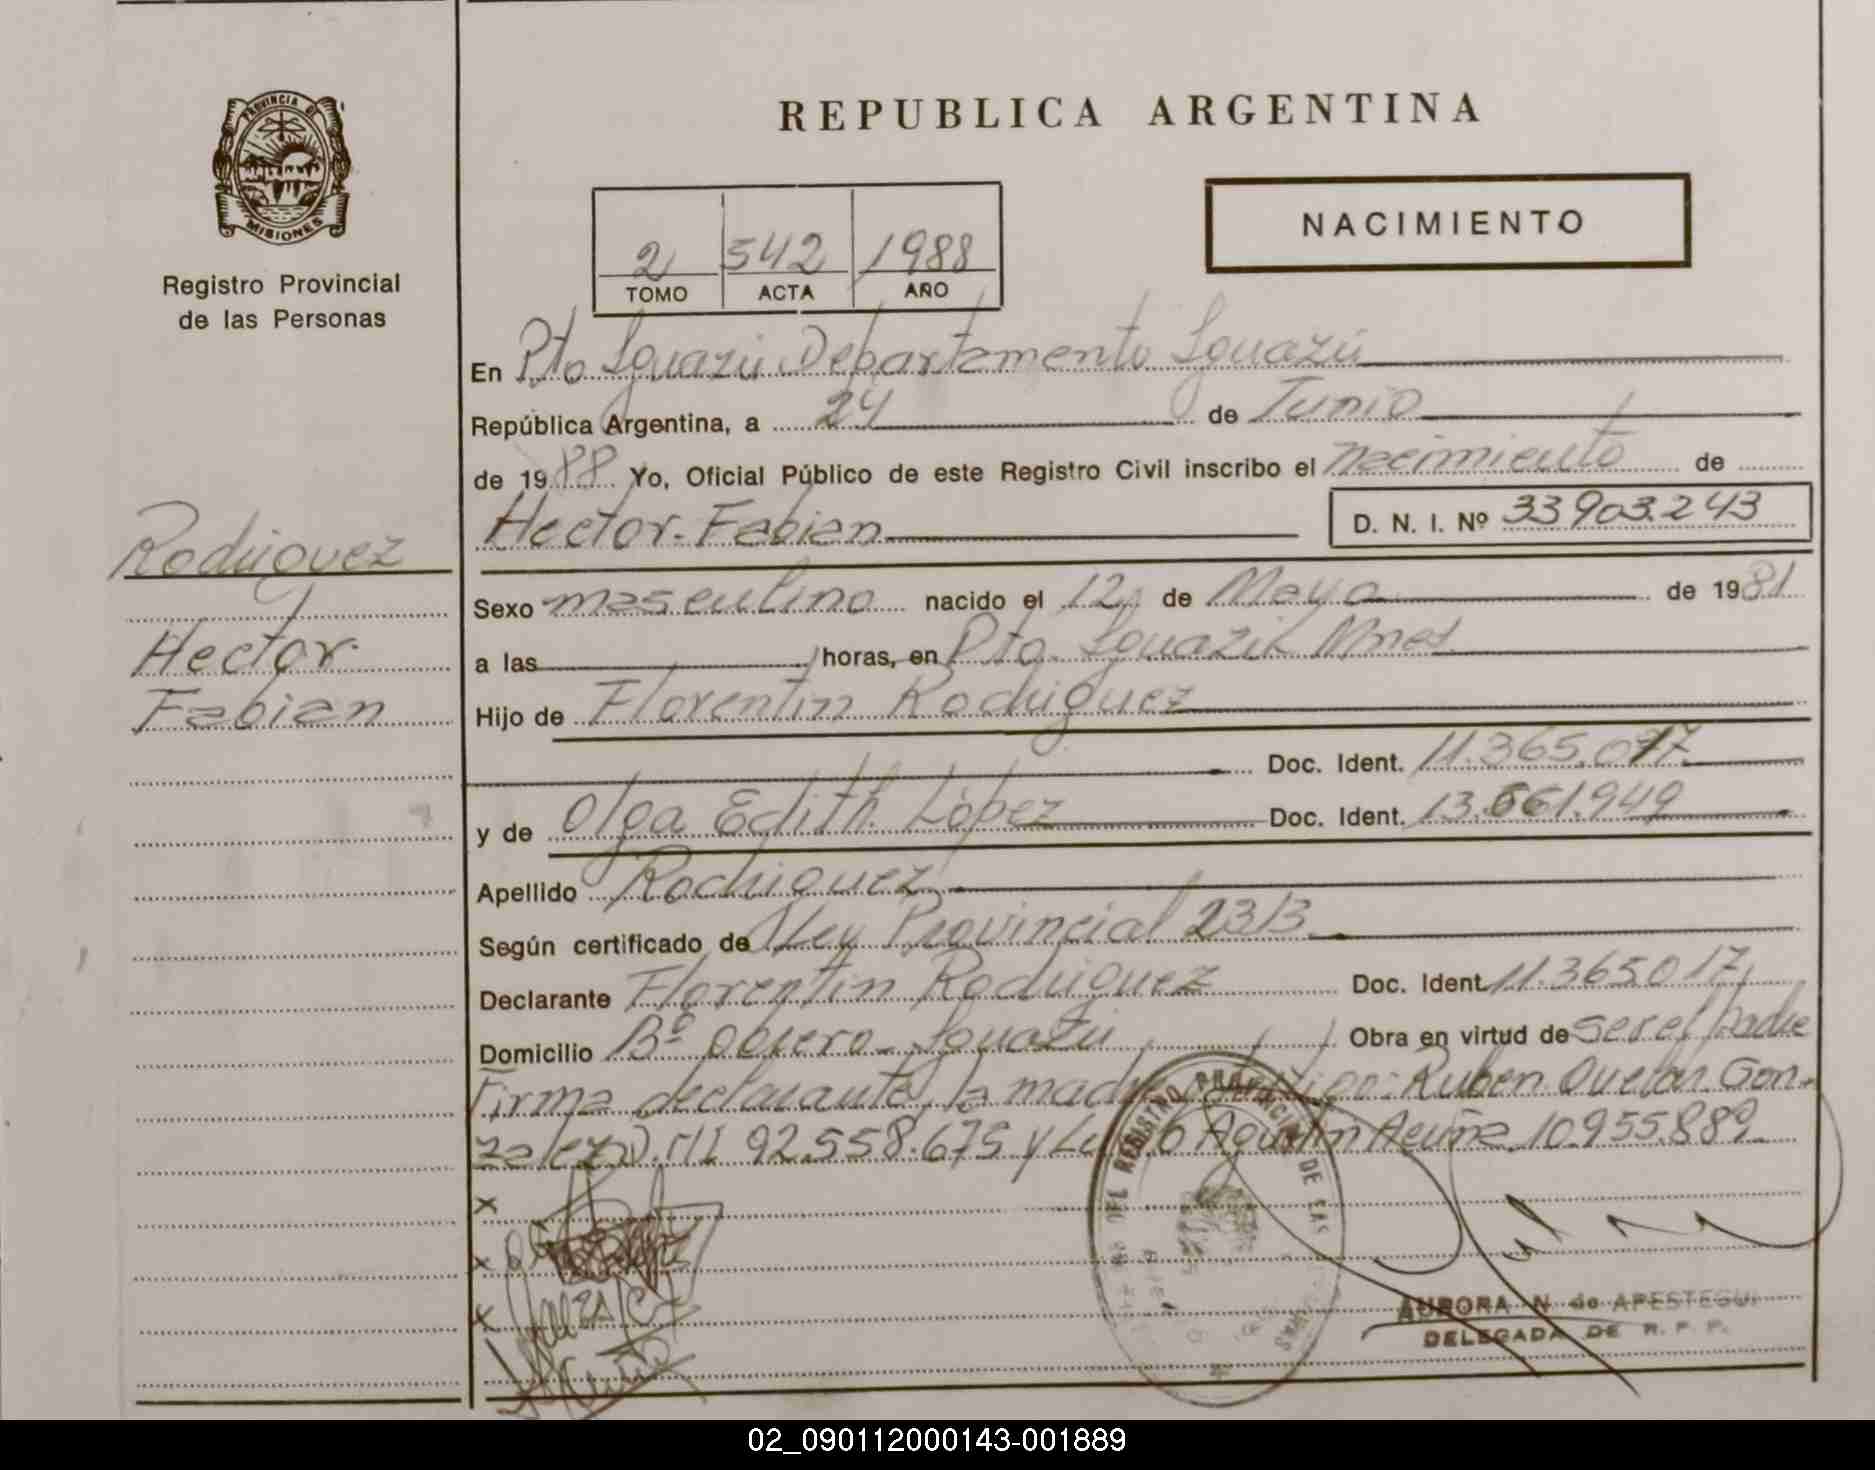 PROVINCIA D
MISIONES
Registro Provincial
de las Personas
Rodriguez
Hector
Fabian
REPUBLICA ARGENTINA
NACIMIENTO
2 542 1988
TOMO ACTA AÑO
En Pto Iguazú Departamento Iguazú
República Argentina, a 24 de Junio
de 1988 Yo, Oficial Público de este Registro Civil inscribo el nacimiento de
Hector Fabian D. N. I. Nº 33903.243
Sexo masculino nacido el 12 de Mayo de 1981
a las horas, en Pto. Iguazú Mnes
Hijo de Florentin Rodriguez
Doc. Ident. 11.365.017
y de Olga Edith López Doc. Ident. 13.661.949
Apellido Rodriguez
Según certificado de Ley Provincial 2313
Declarante Florentin Rodriguez Doc. Ident. 11.365017
Domicilio Bº Obrero - Iguazú Obra en virtud de ser el padre
Firma declarante, la madre Ruben Ovelar Gon-
zalez 92.558.675 y Agustin Acuña 10.955.889
x
x
x
DEL REGISTRO PROVINCIAL DE LAS
AURORA N de APESTEGUI
DELEGADA DE R. P. P.
02_090112000143-001889